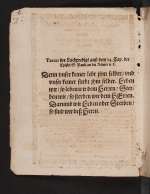 Textus der Leichpredigt auß dem 14. Cap. der
Epistel S. Pauli an die Römer v. 7.
Denn unser keiner lebt jhm selber/ und
unser keiner stirbt jhm selber. Leben
wir/ so leben wir dem HErren: Ster-
ben wir/ so sterben wir dem HErren.
Darumb wir Leben oder Sterben/
so sind wir deß Herrn.